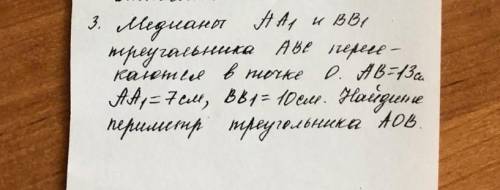 3. Медианы AA₁ и BB₁
треугольника ABC пересе-
каются в точке O. AB=13см
AA₁=7см, BB₁=10см. Найдите
периметр треугольника AOB.